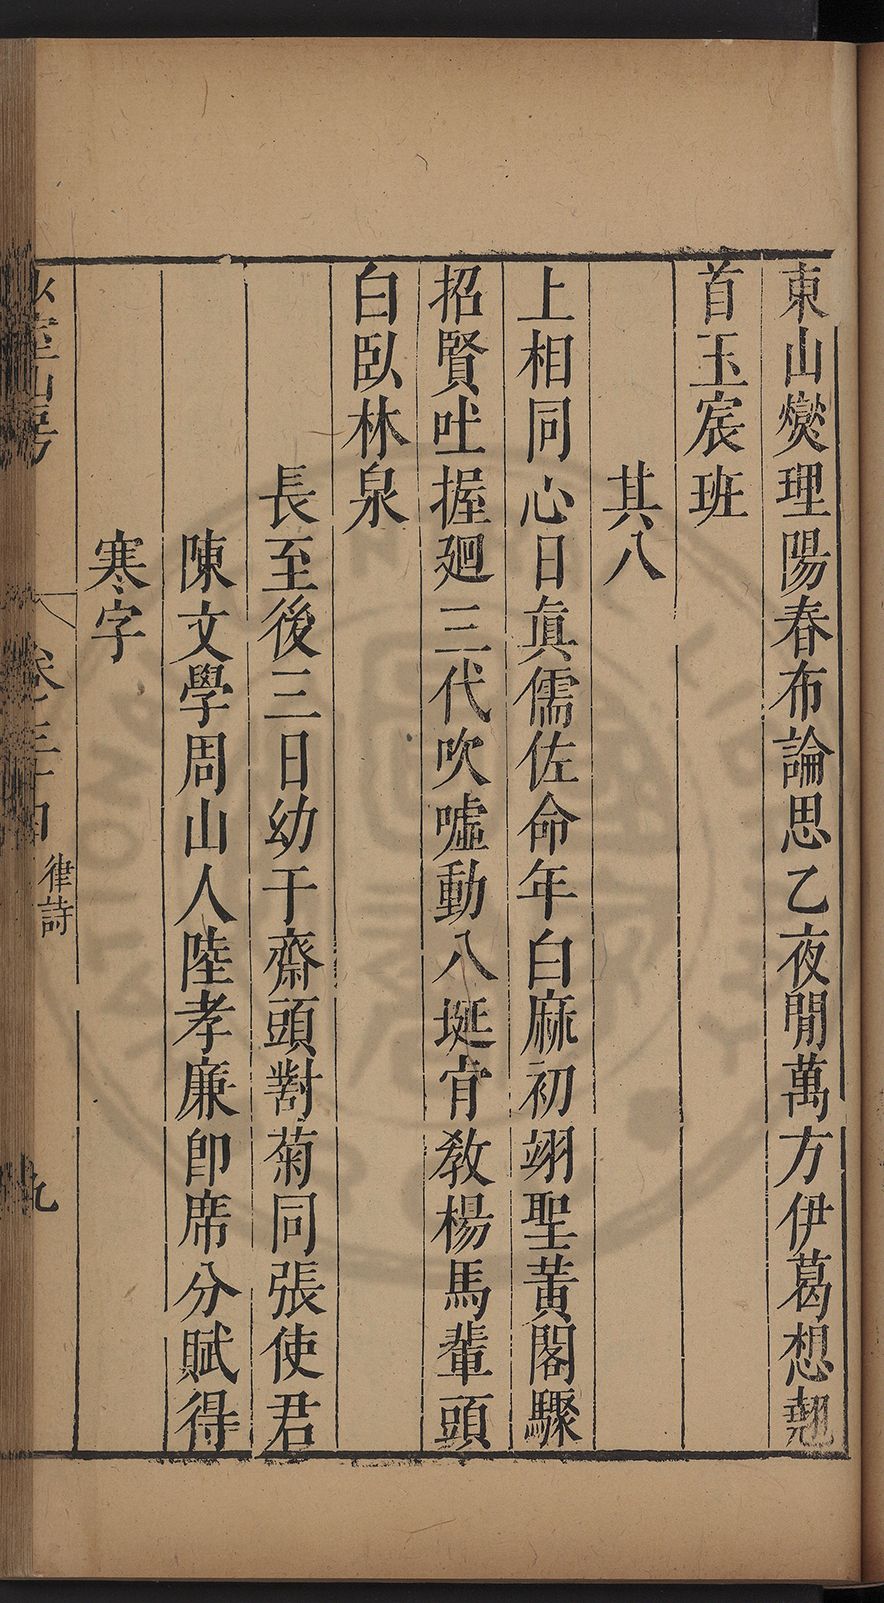 東山燮理陽春布論思乙夜閒萬方伊葛想翹
首玉宸班
其八
上相同心日眞儒佐命年白麻初翊聖黃閣驟
招賢吐握廻三代吹噓動八埏肯教楊馬輩頭
白臥林泉
長至後三日幼于齋頭對菊同張使君
陳文學周山人陸孝廉卽席分賦得
寒字
律詩
九